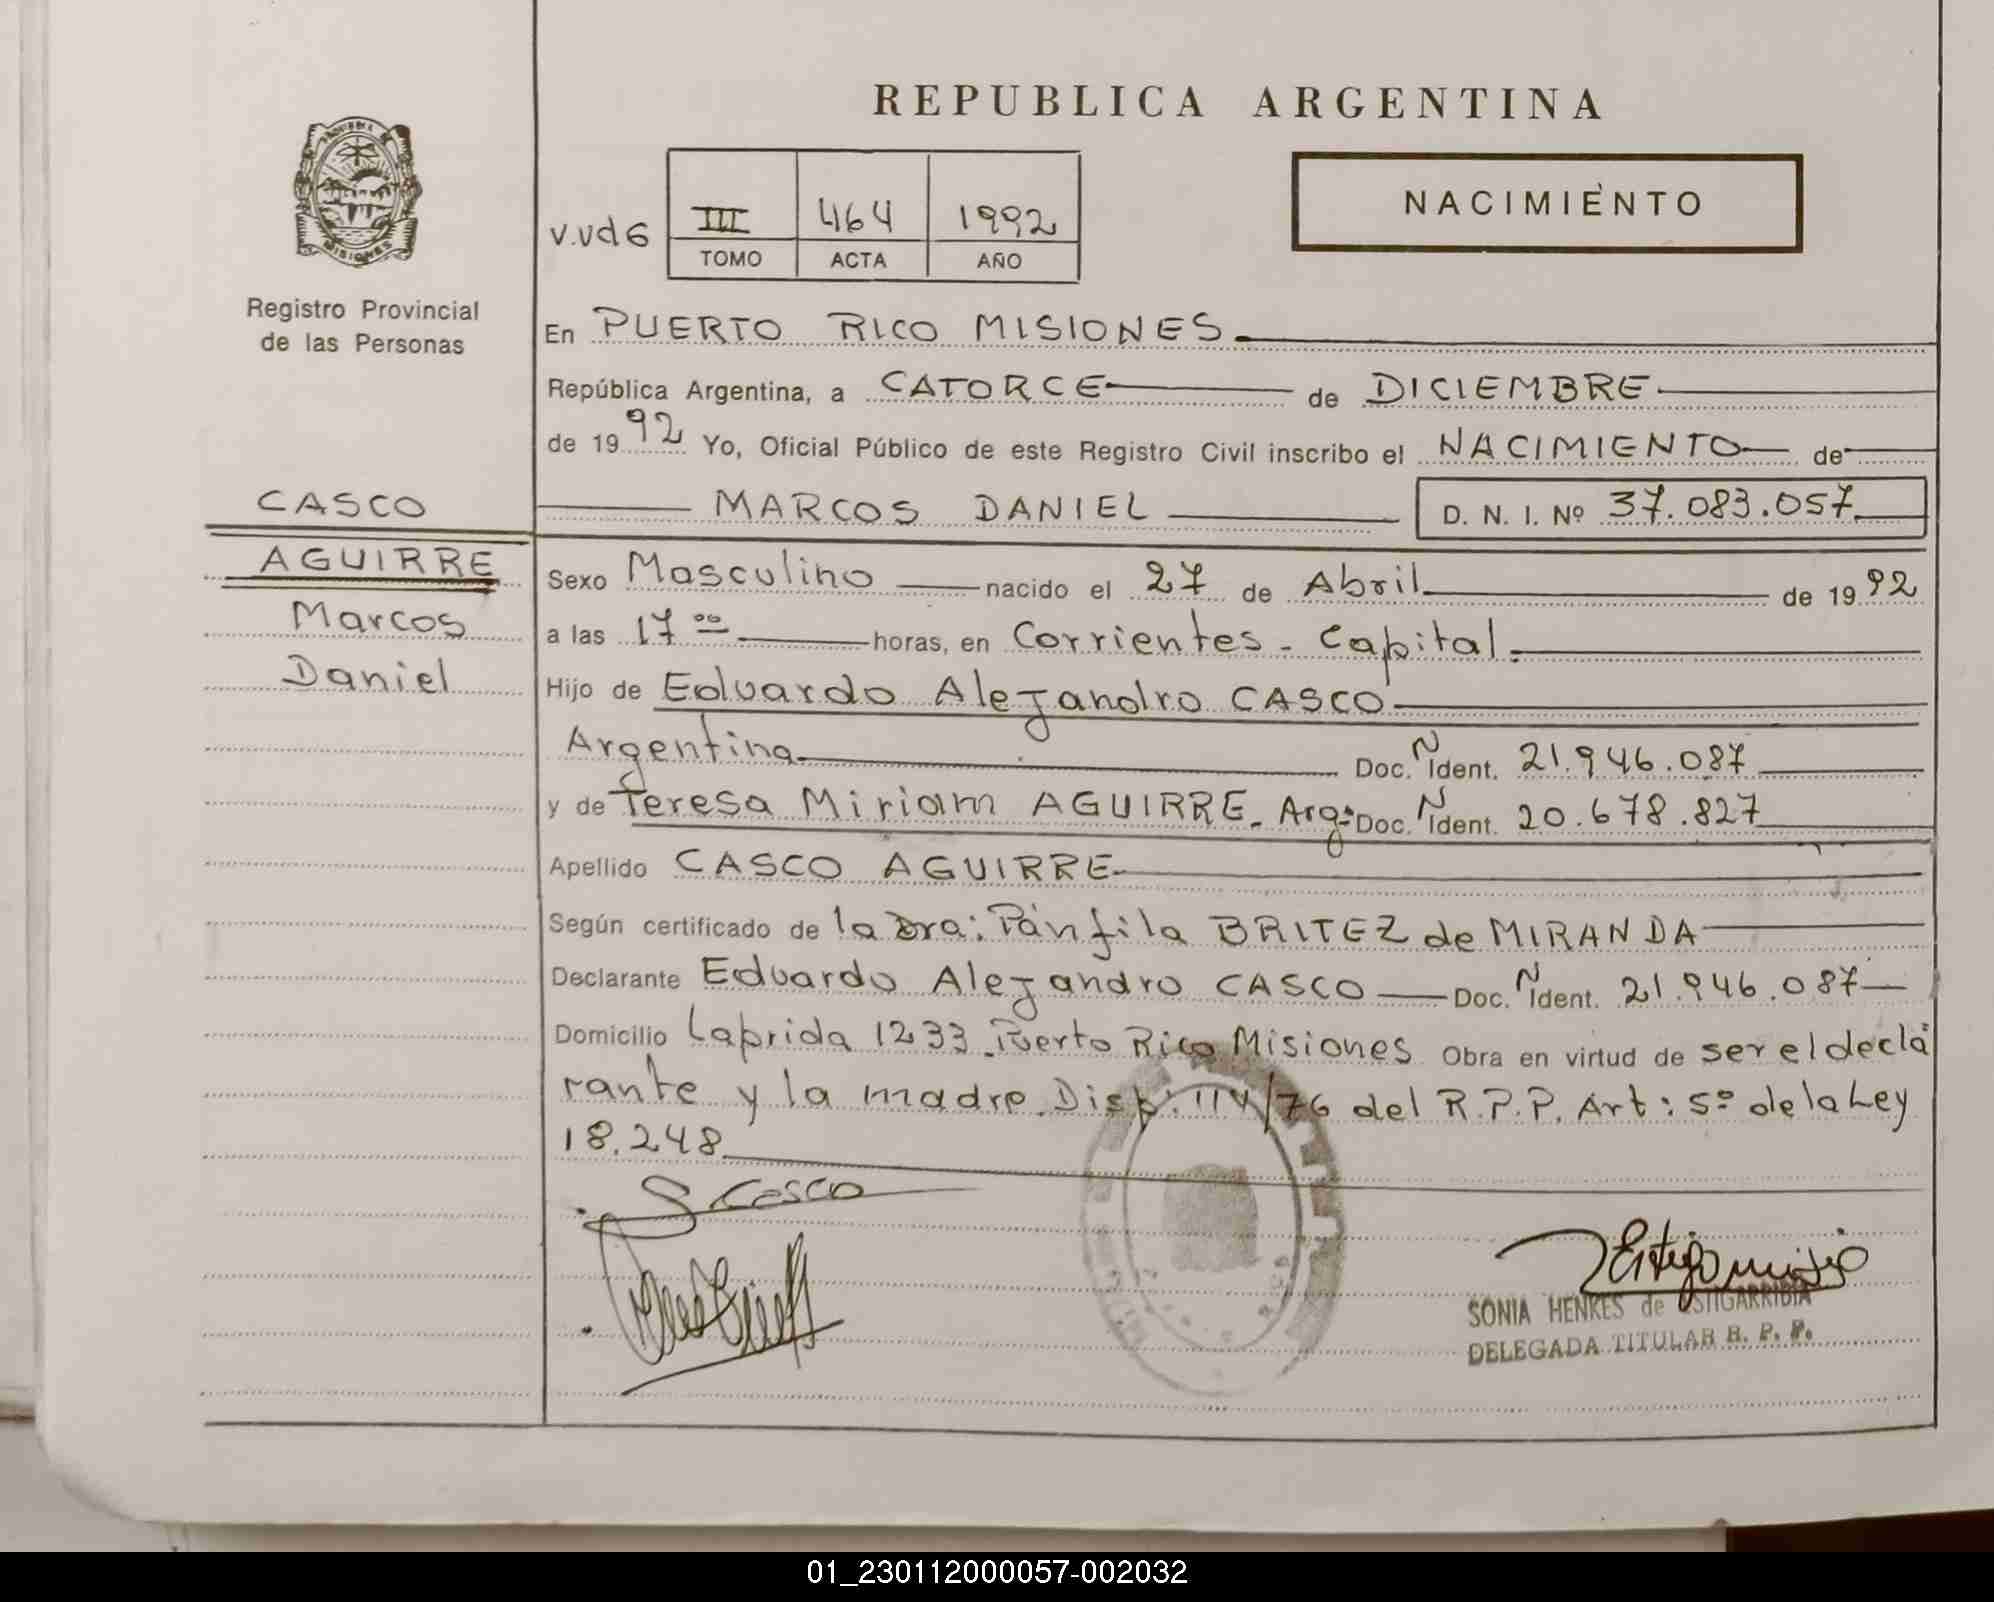 REPUBLICA ARGENTINA
NACIMIENTO
v.vd6
III 464 1992
TOMO ACTA AÑO
MISIONES
Registro Provincial
de las Personas
CASCO
AGUIRRE
Marcos
Daniel
En PUERTO RICO MISIONES
República Argentina, a CATORCE de DICIEMBRE
de 1992 Yo, Oficial Público de este Registro Civil inscribo el NACIMIENTO de
MARCOS DANIEL D. N. I. Nº 37.083.057
Sexo Masculino nacido el 27 de Abril de 1992
a las 17 oo horas, en Corrientes - Capital.
Hijo de Eduardo Alejandro CASCO
Argentina Doc. N Ident. 21.946.087
y de Teresa Miriam AGUIRRE. Arg: Doc. N Ident. 20.678.827
Apellido CASCO AGUIRRE
Según certificado de la Dra: Pánfila BRITEZ de MIRANDA
Declarante Eduardo Alejandro CASCO Doc. N Ident. 21.946.087
Domicilio Laprida 1233. Puerto Rico Misiones Obra en virtud de ser el decla
rante y la madre. Disp: 114/76 del R.P.P. Art: 5º de la Ley
18.248
Casco
SONIA HENKES de ESTIGARRIBIA
DELEGADA TITULAR R. P. P.
01_230112000057-002032